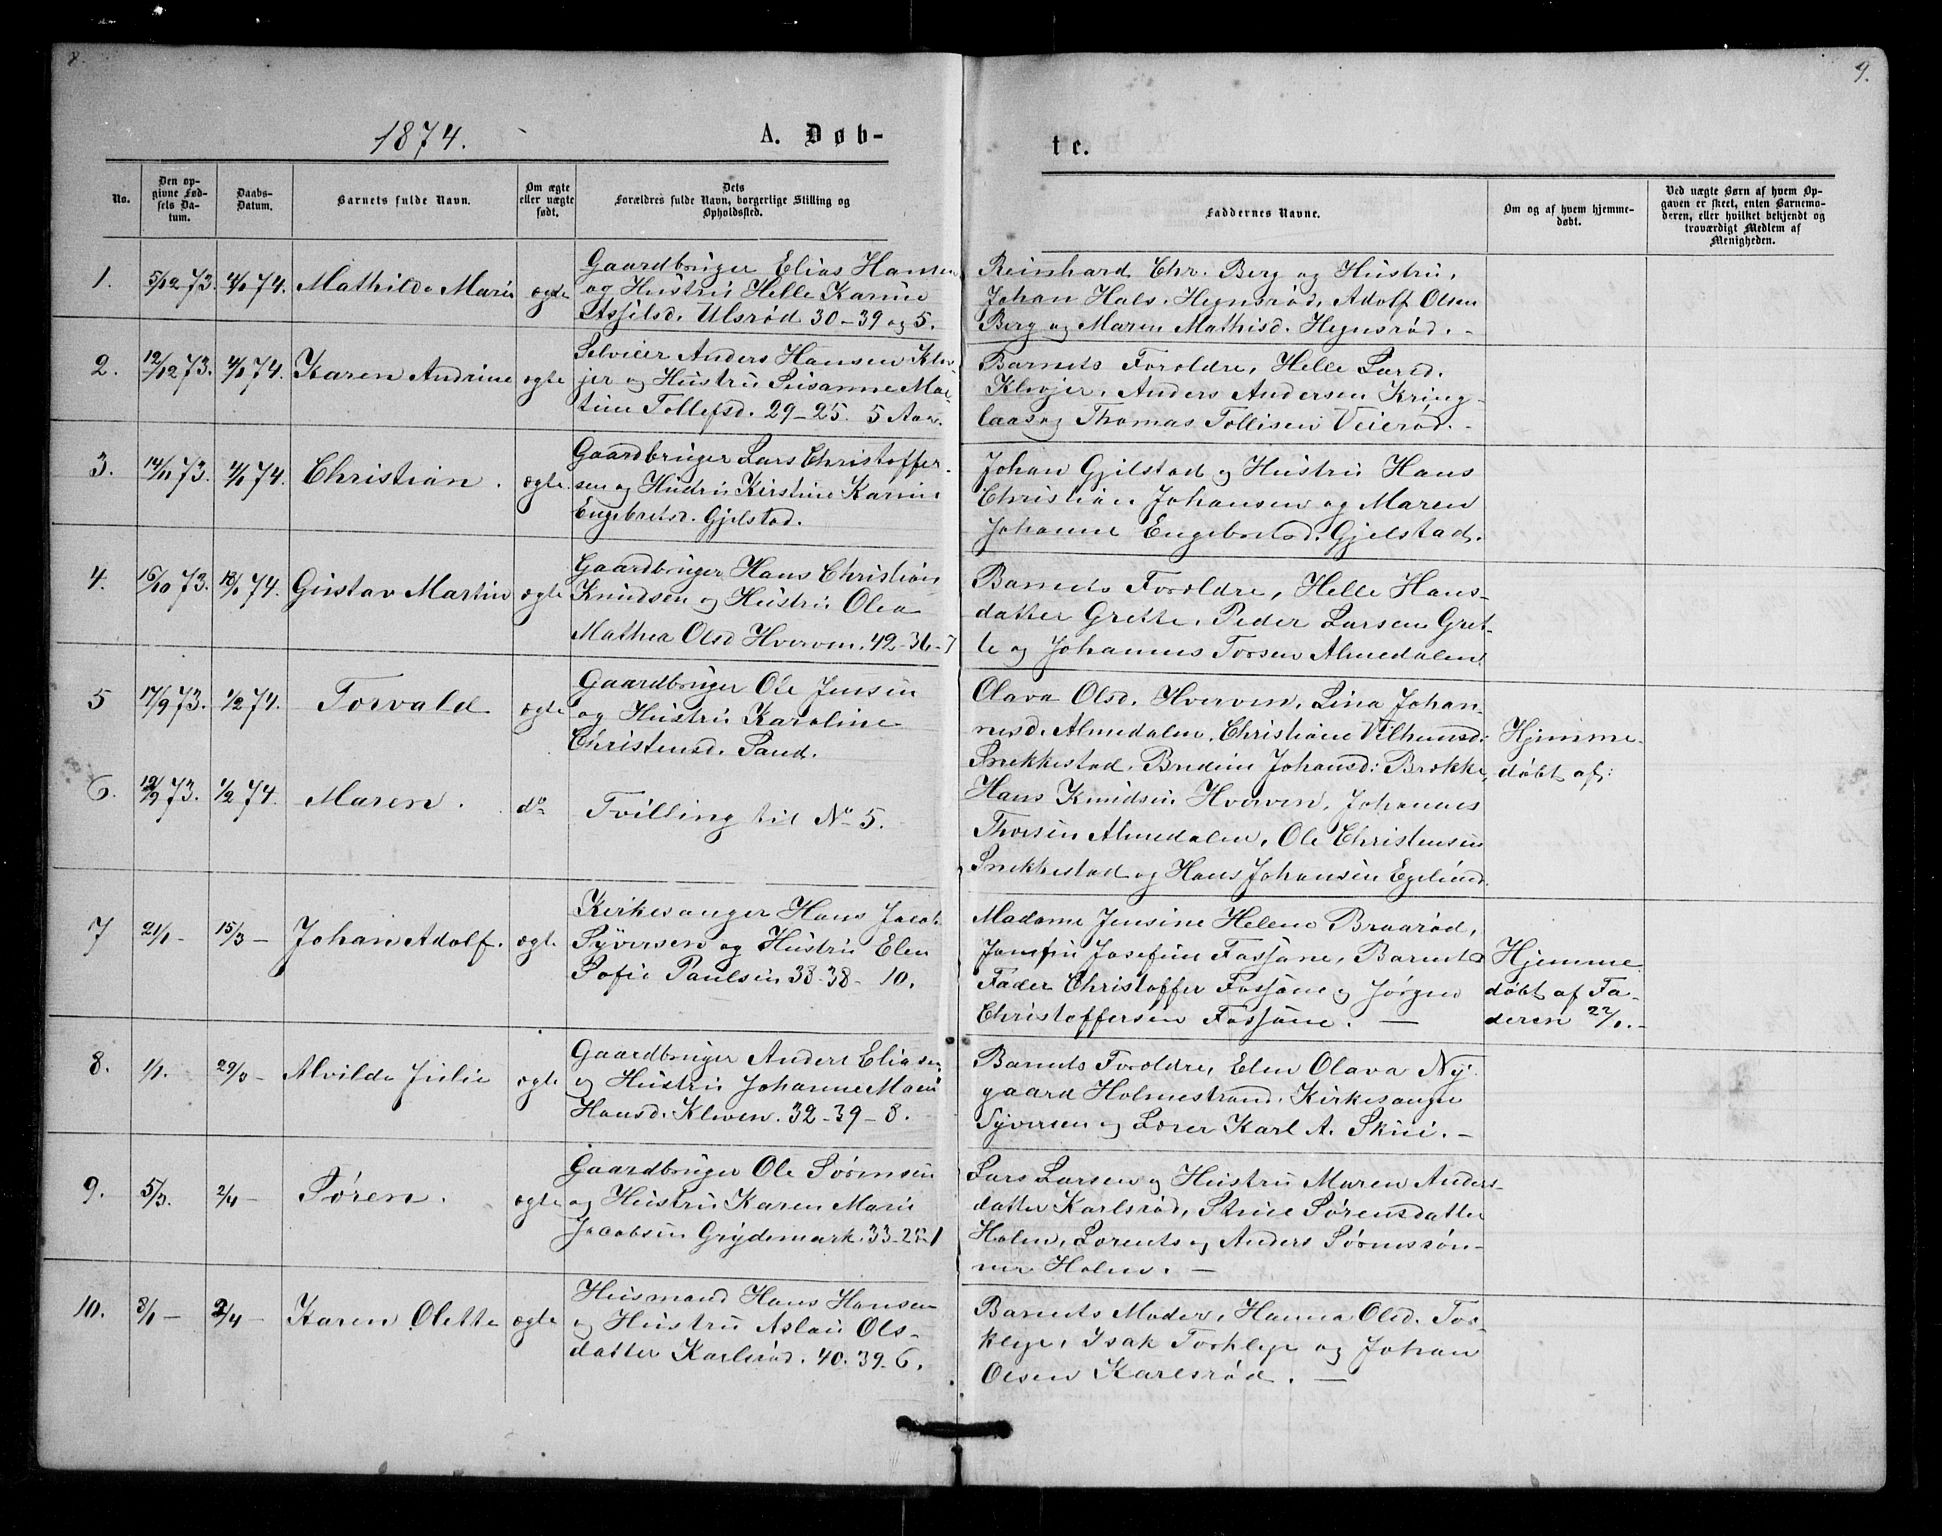 8.
9.
1874.
A. Døb-
te.
No.
Den op-
givne Fød-
sels Da-
tum.
Daabs-
Datum.
Barnets fulde Navn.
Om ægte
eller uægte
født.
Dets
Forældres fulde Navn, borgerlige Stilling og
Opholdssted.
Faddernes Navne.
Om og af hvem hjemme-
døbt.
Ved uægte Børn af hvem Op-
gaven er skeet, enten Barnemo-
deren, eller hvilket bekjendt og
troværdigt Medlem af
Menigheden.
1.
5/12 73.
4/1 74.
Mathilde Marie
ægte
Gaardbruger Elias Hansen
og Hustru Helle Karine
Ulsrød 30-39 og 5.
Reinhard Chr. Berg og Hustru,
Johan Hals. Hegnsrød, Adolf Olsen
Berg og Maren Mathisd. Hegnsrød. -
2.
12/12 73.
4/1 74.
Karen Andrine
ægte
Selveier Anders Hansen Klev-
jer og Hustru Susanne Mar-
tine Tollefsd. 29-25. 5 Aar.
Barnets Forældre, Helle Larsd.
Klevjer, Anders Andersen Kring-
laas og Thomas Tollisen Veierød. -
3.
14/11 73.
4/1 74.
Christian.
ægte
Gaardbruger Lars Christoffer-
sen og Hustru Kirstine Karine
Engebretsd. Gjelstad.
Johan Gjelstad og Hustru Hans
Christian Johansen og Maren
Johanne Engebretsd. Gjelstad.
4.
16/10 73.
18/1 74.
Gustav Martin
ægte
Gaardbruger Hans Christian
Knudsen og Hustru Olea
Mathea Olsd Hverven. 42-36-7
Barnets Forældre, Helle Hans-
datter Grette, Peder Larsen Gret-
te og Johannes Torsen Almedalen
5
17/9 73.
1/2 74.
Torvald
ægte
Gaardbruger Ole Jensen
og Hustru Karoline
Christensd. Sand.
Olava Olsd. Hverven, Lina Johan-
nesd. Almedalen, Christiane Vilhumsd:
Snekkestad. Johansd: Brekke,
Hjemme-
døbt af:
6.
12/9 73.
1/2 74.
Maren.
do
Tvilling til No 5.
Hans Knudsen Hverven, Johannes
Thorsen Almedalen, Ole Christensen
Snekkestad og Hans Johansen Egelund.
7
21/1 -
15/3 -
Johan Adolf.
ægte
Kirkesanger Hans Jacob
Syversen og Hustru Elen
Sofie Paulsen 38-38- 10.
Madame Jensine Helene Braarød,
Jomfru Josefine Fossane, Barnets
Fader Christoffer Fossane og Jørgen
Christoffersen Fossane. -
Hjemme
døbt af Fa-
deren 22/1. -
8.
1/1.
29/3 -
Alvilde Julie
ægte
Gaardbruger Anders Eliasen
og Hustru Johanne Marie
Hansd. Kleven. 32-39-8.
Barnets Forældre, Elen Olava Ny-
gaard Holmestrand, Kirkesanger
Syversen og Lærer Karl A. Skui. -
9.
5/3.
2/4 -
Søren.
ægte
Gaardbruger Ole Sørensen
og Hustru Karen Marie
Jacobsen Grydemark. 33-25-1
Lars Larsen og Hustru Maren Anders-
datter Karlsrød, Sørensdatter
Holm, Lorents og Anders Sørenssøn-
ner Holm. -
10.
8/1 -
2/4 -
Karen Olette
ægte
Husmand Hans Hansen
og Hustru Aslau Ols-
datter Karlsrød. 40. 39-6.
Barnets Moder, Hanna Olsd. Tor-
kleje, Isak Torkleje og Johan
Olsen Karlsrød. -